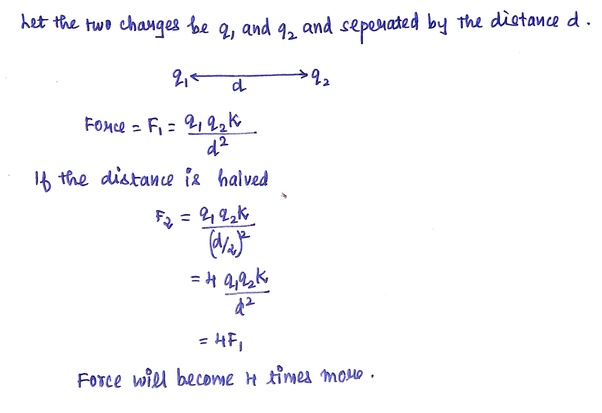 Let the two charges be q₁ and q₂ and seperated by the distance d.
q₁ ⟷ q₂
d
Force = F₁ = q₁q₂k / d²
If the distance is halved
F₂ = q₁q₂k / (d/2)²
= 4 q₁q₂k / d²
= 4F₁
Force will become 4 times more.